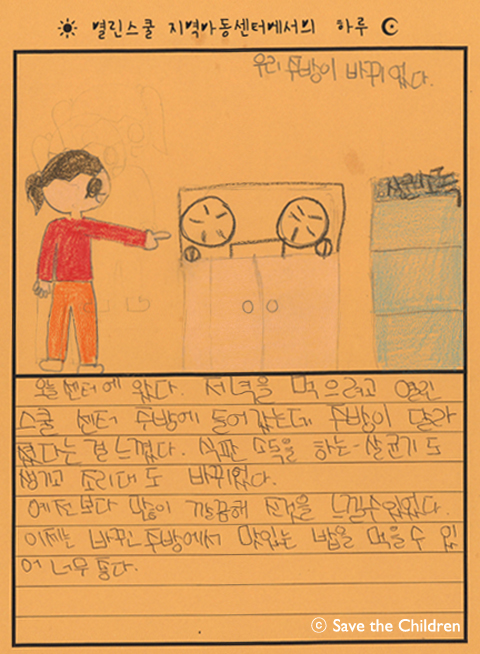 열린스쿨 지역아동센터에서의 하루
우리 주방이 바뀌었다.
살균소독
오늘 센터에 왔다. 저녁을 먹으려고 열린
스쿨 센터 주방에 들어갔는데 주방이 달라
졌다는걸 느꼈다. 식판 소독을 하는 살균기도
생기고 조리대도 바뀌었다.
예전보다 많이 깔끔해 진것을 느낄수있었다.
이제는 바뀐 주방에서 맛있는 밥을 먹을수 있
어 너무 좋다.
© Save the Children